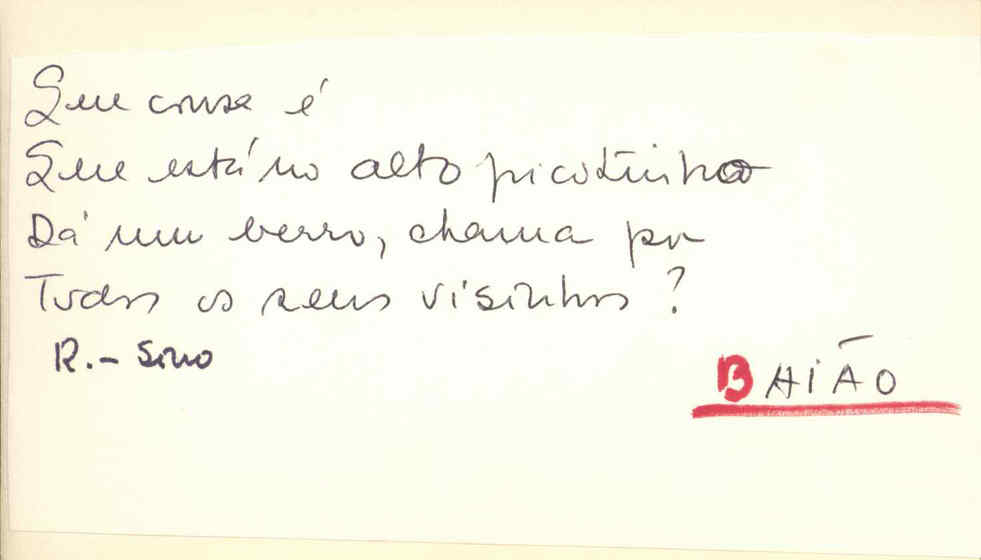 Que cousa é
Que está no alto picotinho
Dá um berro, chama por
Todos os seus visinhos?
R. - Sino
BAIÃO